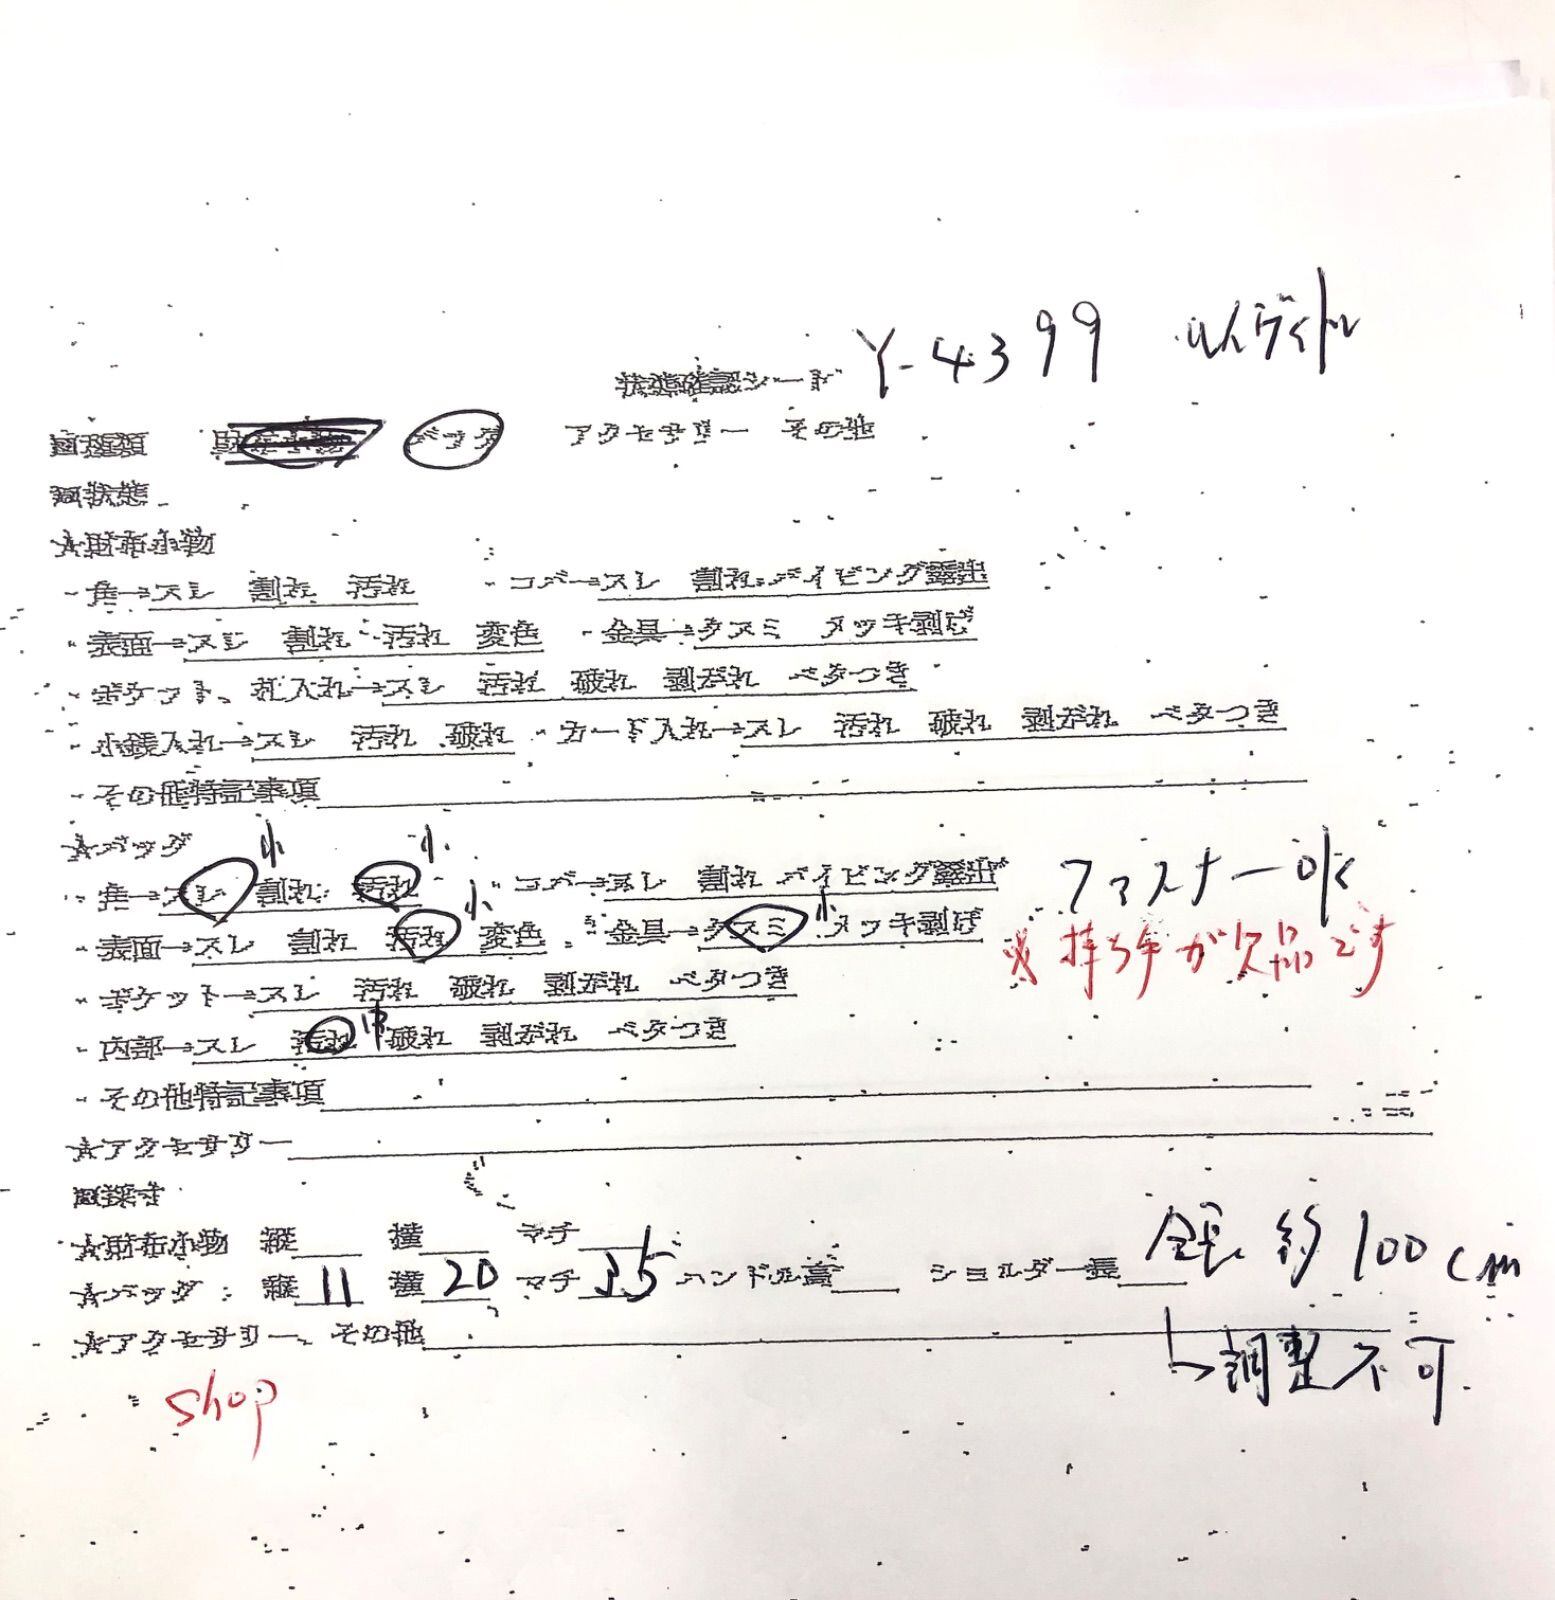 状態確認シート Y-4399 ルイヴィトン
種類 財布小物 バッグ アクセサリー その他
状態
☆財布小物
・角→スレ 割れ 汚れ ・コバ→スレ 割れ パイピング露出
・表面→スレ 割れ 汚れ 変色 ・金具→クスミ メッキ剥げ
・ポケット、札入れ→スレ 汚れ 破れ 剥がれ ベタつき
・小銭入れ→スレ 汚れ 破れ ・カード入れ→スレ 汚れ 破れ 剥がれ ベタつき
・その他特記事項
☆バッグ 小 小
・角→スレ 割れ 汚れ ・コバ→スレ 割れ パイピング露出 ファスナーok
・表面→スレ 割れ 汚れ 小 変色 ・金具→クスミ 小 メッキ剥げ ※持ち手が欠品です
・ポケット→スレ 汚れ 破れ 剥がれ ベタつき
・内部→スレ 汚れ 中 破れ 剥がれ ベタつき
・その他特記事項
☆アクセサリー
採寸
☆財布小物 縦 横 マチ
☆バッグ：縦 11 横 20 マチ 3.5 ハンドル高 ショルダー長 全長 約100cm
☆アクセサリー、その他 ↳調整不可
shop